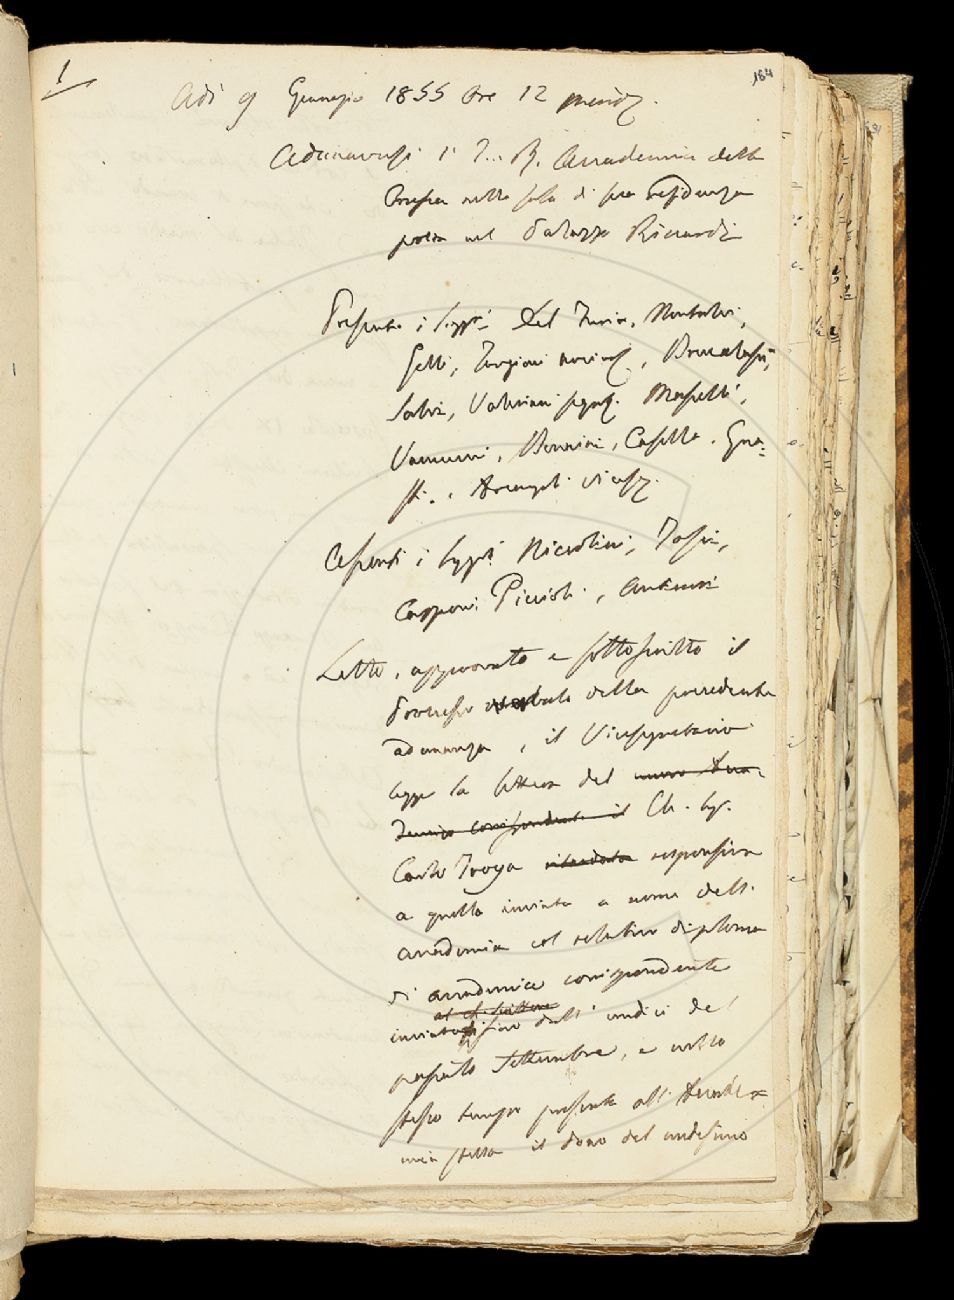 1
164
Adì 9 Gennajo 1855 Ore 12 merid.
Adunavasi l' I. R. Accademia della
Crusca nella sala di sua residenza
posta nel Palazzo Riccardi
Presenti i Sigg.ri Del Furia, Montalvi,
Gelli, Targioni, Brucalassi,
Salvi, Valeriani segret. Masselli,
Vannucci, Bonnini, Casella, Gua-
sti, Arcangeli vicese.
Assenti i Sigg.ri Niccolini,
Capponi,
Letto, approvato e sottoscritto il
Processo verbale della precedente
adunanza, il Vicesegretario
legge la lettera del nuovo Acca-
demico corrispondente il Ch. Sig.
Carlo Troya responsiva
a quella inviata a nome dell'
Accademia col relativo diploma
di accademico corrispondente
inviato fino dall' undici del
passato Settembre, e nello
stesso tempo presenta all' Accade-
mia stessa il dono del medesimo